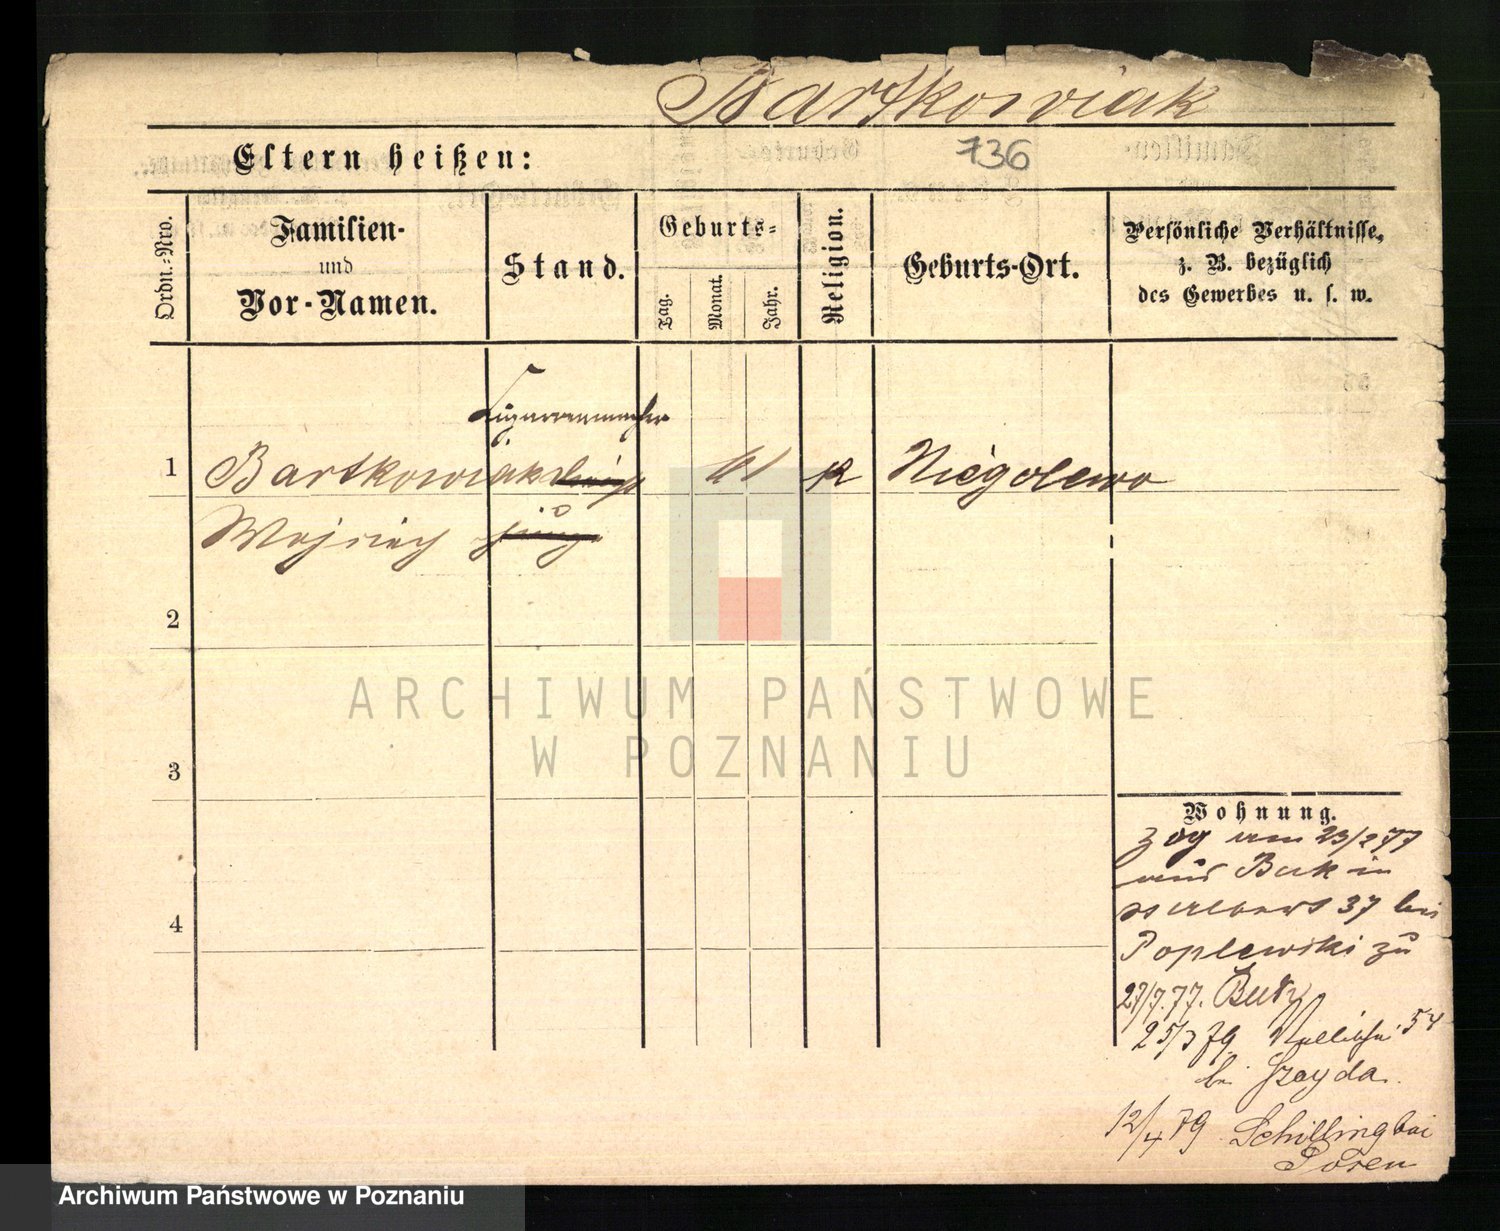 Bartkowiak
Eltern heißen:
736
Ordn.-Nro.
Familien-
und
Vor-Namen.
Stand.
Geburts-
Tag.
Monat.
Jahr.
Religion.
Geburts-Ort.
Persönliche Verhältnisse,
z. B. bezüglich
des Gewerbes u. s. w.
Cigarrenmacher
1 Bartkowiak 61 K Niegolewo
Wojciech
2
3
4
ARCHIWUM PAŃSTWOWE
W POZNANIU
Wohnung.
zog am 23/2 77
aus Buk in
37 bei
Poplewski zu
27/7.77. Buk
25/3 79 Wallischei 54
bei Szayda.
12/4 79 Schilling bei
Posen
Archiwum Państwowe w Poznaniu